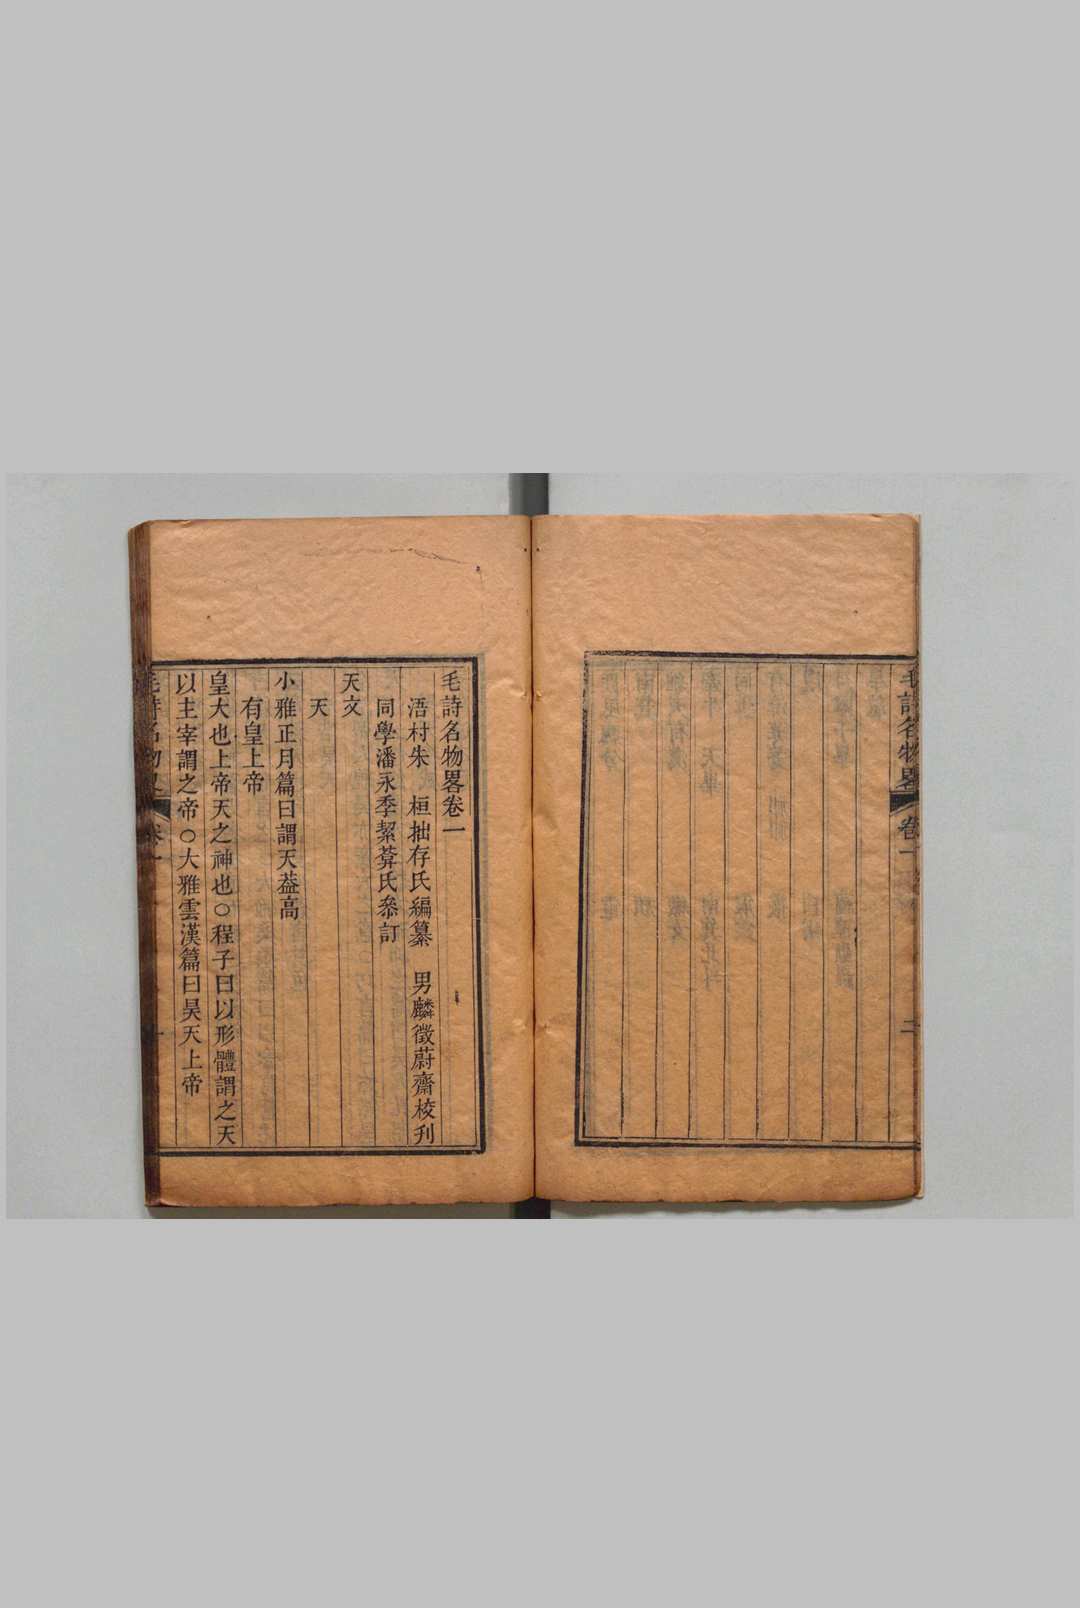 毛詩名物畧
卷一
二
毛詩名物畧卷一
浯村朱　桓拙存氏編纂　男麟徵蔚齋校刊
同學潘永季絜菴氏叅訂
天文
天
小雅正月篇曰謂天葢高
有皇上帝
皇大也上帝天之神也○程子曰以形體謂之天
以主宰謂之帝○大雅雲漢篇曰昊天上帝
毛詩名物畧
卷一
一